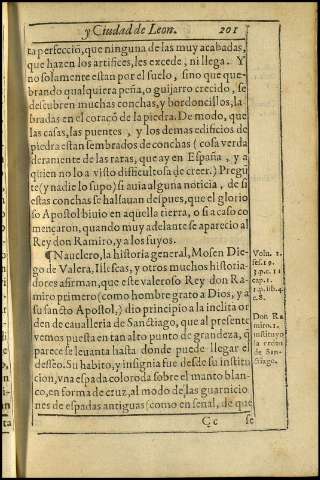 y Ciudad de Leon. 201
ta perfecciõ, que ninguna de las muy acabadas,
que hazen los artifices, les excede, ni llega. Y
no solamente estan por el suelo, sino que que-
brando qualquiera peña, o guijarro crecido, se
descubren muchas conchas, y bordoncillos, la
bradas en el coraçõ de la piedra. De modo, que
las casas, las puentes, y los demas edificios de
piedra estan sembrados de conchas (cosa verda
deramente de las raras, que ay en España, y a
quien no lo a visto dificultosa de creer.) Pregũ
te (y nadie lo supo) si auia alguna noticia, de si
estas conchas se hallauan despues, que el glorio
so Apostol biuio en aquella tierra, o si a caso co
mençaron, quando muy adelante se aparecio al
Rey don Ramiro, y a los suyos.
¶ Nauclero, la historia general, Mosen Die-
go de Valera, Illescas, y otros muchos historia-
dores afirman, que este valeroso Rey don Ra-
miro primero (como hombre grato a Dios, y a
su sancto Apostol,) dio principio a la inclita or
den de caualleria de Sanctiago, que al presente
vemos puesta en tan alto punto de grandeza, q̃
parece se leuanta hasta donde puede llegar el
desseo. Su habito, y insignia fue desde su institu
cion, vna espada colorada sobre el manto blan-
co, en forma de cruz, al modo de las guarnicio
nes de espadas antiguas (como en señal, de que
Cc se
Volu. 1.
3.p.c. 11
cap. 1.
1.p. lib. 4.
c. 8.
Don Ra
miro. 1.
instituyo
la orden
de San-
ctiago.